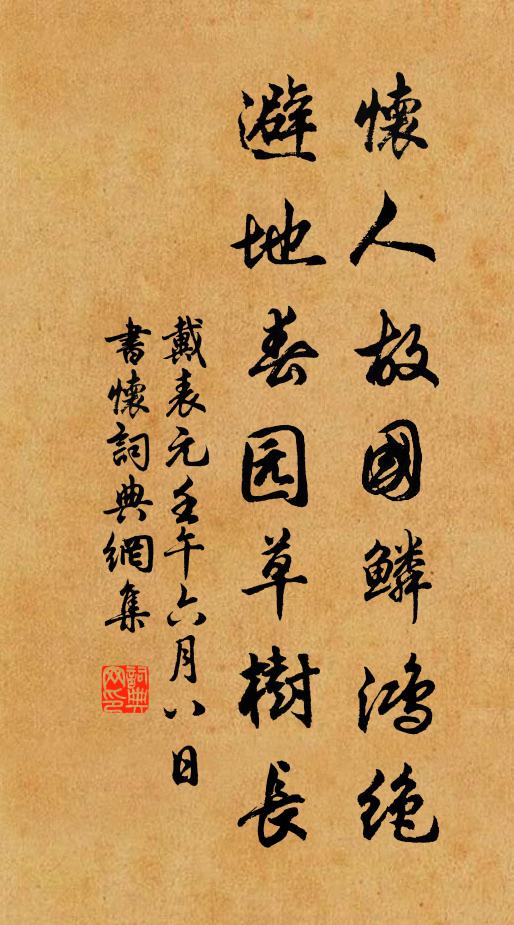 懷人故國鱗鴻絶
避地春园草樹長
戴表元壬午六月八日
書懷詞典網集
詞典
网印